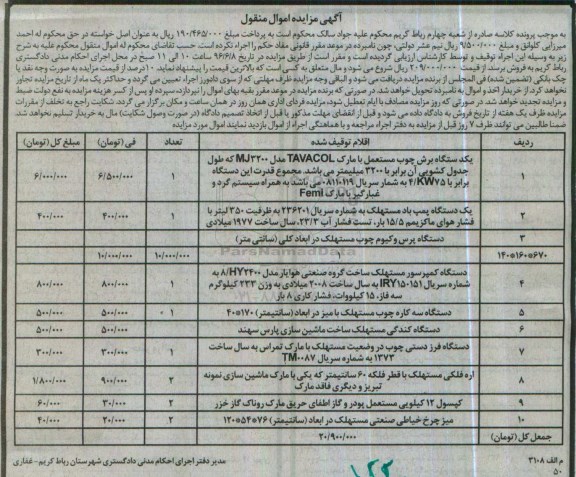 آگهی مزایده اموال منقول
به موجب پرونده کلاسه صادره از شعبه چهارم رباط کریم محکوم علیه جواد سالک محکوم است به پرداخت مبلغ ۱۹۰/۴۶۵/۰۰۰ ریال به عنوان اصل خواسته در حق محکوم له احمد
میرزایی کلوانق و مبلغ ۹/۵۰۰/۰۰۰ ریال نیم عشر دولتی، چون نامبرده در موعد مقرر قانونی مفاد حکم را اجراء نکرده است. حسب تقاضای محکوم له اموال منقول محکوم علیه به شرح
زیر به وسیله این اجراء توقیف و توسط کارشناس ارزیابی گردیده است و مقرر است از طریق مزایده در تاریخ ۹۶/۶/۸ ساعت ۱۰ الی ۱۱ صبح در محل اجرای احکام مدنی دادگستری
رباط کریم به فروش برسد. از قیمت ۲۰۹/۰۰۰/۰۰۰ ریال شروع می شود و مال متعلق به کسی است که بالاترین قیمت را پیشنهاد نماید. ۱۰ درصد از قیمت مزایده به صورت وجه نقد یا
چک بانکی (تضمین شده) فی المجلس از برنده مزایده دریافت می شود و الباقی وجه مزایده ظرف مهلتی که از سوی دادورز اجراء تعیین می گردد و حداکثر یک ماه از تاریخ مزایده تجاوز
نخواهد کرد، از خریدار اخذ و اموال به نامبرده تحویل خواهد شد. در صورتی که برنده مزایده در موعد مقرر بقیه بهای اموال را نپردازد، سپرده او پس از کسر هزینه مزایده به نفع دولت ضبط
و مزایده تجدید خواهد شد. در صورتی که روز مزایده مصادف با ایام تعطیل شود، مزایده فردای اداری همان روز در همان ساعت و مکان برگزار می گردد. شکایت راجع به تخلف از مقررات
مزایده ظرف یک هفته از تاریخ فروش به دادگاه داده می شود و قبل از انقضای مهلت مذکور یا قبل از اتخاذ تصمیم دادگاه (در صورت وصول شکایت) مال به خریدار تسلیم نخواهد شد.
ضمنا طالبین می توانند ظرف ۷ روز قبل از مزایده به دفتر اجراء مراجعه و با هماهنگی اجراء از اموال بازدید نمایند. اموال مورد مزایده
ردیف اقلام توقیف شده تعداد فی (تومان) مبلغ کل (تومان)
۱ یک دستگاه برش چوب مستعمل با مارک TAVACOL مدل MJ۳۲۰۰ که طول جدول کشویی آن برابر با ۳۲۰۰ میلیمتر می باشد. مجموع قدرت این دستگاه برابر با ۴/KW۷۵ به شمار سریال ۰۸۱۱۰۱۱۹ می باشد به همراه سیستم گرد و غبارگیر با مارک Femi ۱ ۶/۵۰۰/۰۰۰ ۶/۰۰۰/۰۰۰
۲ یک دستگاه پمپ باد مستهلک به شماره سریال ۲۳۶۲۰۱ به ظرفیت ۳۵۰ لیتر با فشار هوای ماگزیمم ۱۵/۵ بار، تست فشار آب ۲۳/۳، سال ساخت ۱۹۷۷ میلادی ۱ ۴۰۰/۰۰۰ ۴۰۰/۰۰۰
۳ دستگاه پرس وکیوم چوب مستهلک در ابعاد کلی (سانتی متر)
۶۷۰*۱۶۰*۱۴۰ ۱ ۱۰/۰۰۰/۰۰۰ ۱۰/۰۰۰/۰۰۰
۴ دستگاه کمپرسور مستهلک ساخت گروه صنعتی هوایار مدل ۸/HY۲۴۰۰ به شماره سریال IRY۱۵۰۱۵۱ به سال ساخت ۲۰۰۸ میلادی به وزن ۲۳۳ کیلوگرم سه فاز، ۱۵ کیلووات، فشار کاری ۸ بار ۱ ۸۰۰/۰۰۰ ۸۰۰/۰۰۰
۵ دستگاه سه کاره چوب مستهلک با میز در ابعاد (سانتیمتر) ۱۷۰*۴۰ ۱ ۵۰۰/۰۰۰ ۵۰۰/۰۰۰
۶ دستگاه کندگی مستهلک ساخت ماشین سازی پارس سهند ۵۰۰/۰۰۰ ۵۰۰/۰۰۰
۷ دستگاه فرز دستی چوب در وضعیت مستهلک با مارک تمراس به سال ساخت ۱۳۷۳ به شماره سریال TM۰۰۸۷ ۱ ۳۰۰/۰۰۰ ۳۰۰/۰۰۰
۸ اره فلکی مستهلک با قطر فلکه ۶۰ سانتیمتر که یکی با مارک ماشین سازی نمونه تبریز و دیگری فاقد مارک ۲ ۹۰۰/۰۰۰ ۱/۸۰۰/۰۰۰
۹ کپسول ۱۲ کیلویی مستعمل پودر و گاز اطفای حریق مارک روناک گاز خزر ۲ ۳۰/۰۰۰ ۶۰/۰۰۰
۱۰ میز چرخ خیاطی صنعتی مستهلک در ابعاد (سانتیمتر) ۷۶*۵۴*۱۲۰ ۲ ۲۰/۰۰۰ ۴۰/۰۰۰
جمع کل (تومان) ۲۰/۹۰۰/۰۰۰
م الف ۳۱۰۸ مدیر دفتر اجرای احکام مدنی دادگستری شهرستان رباط کریم - غفاری
۵۰
ParsNamadData